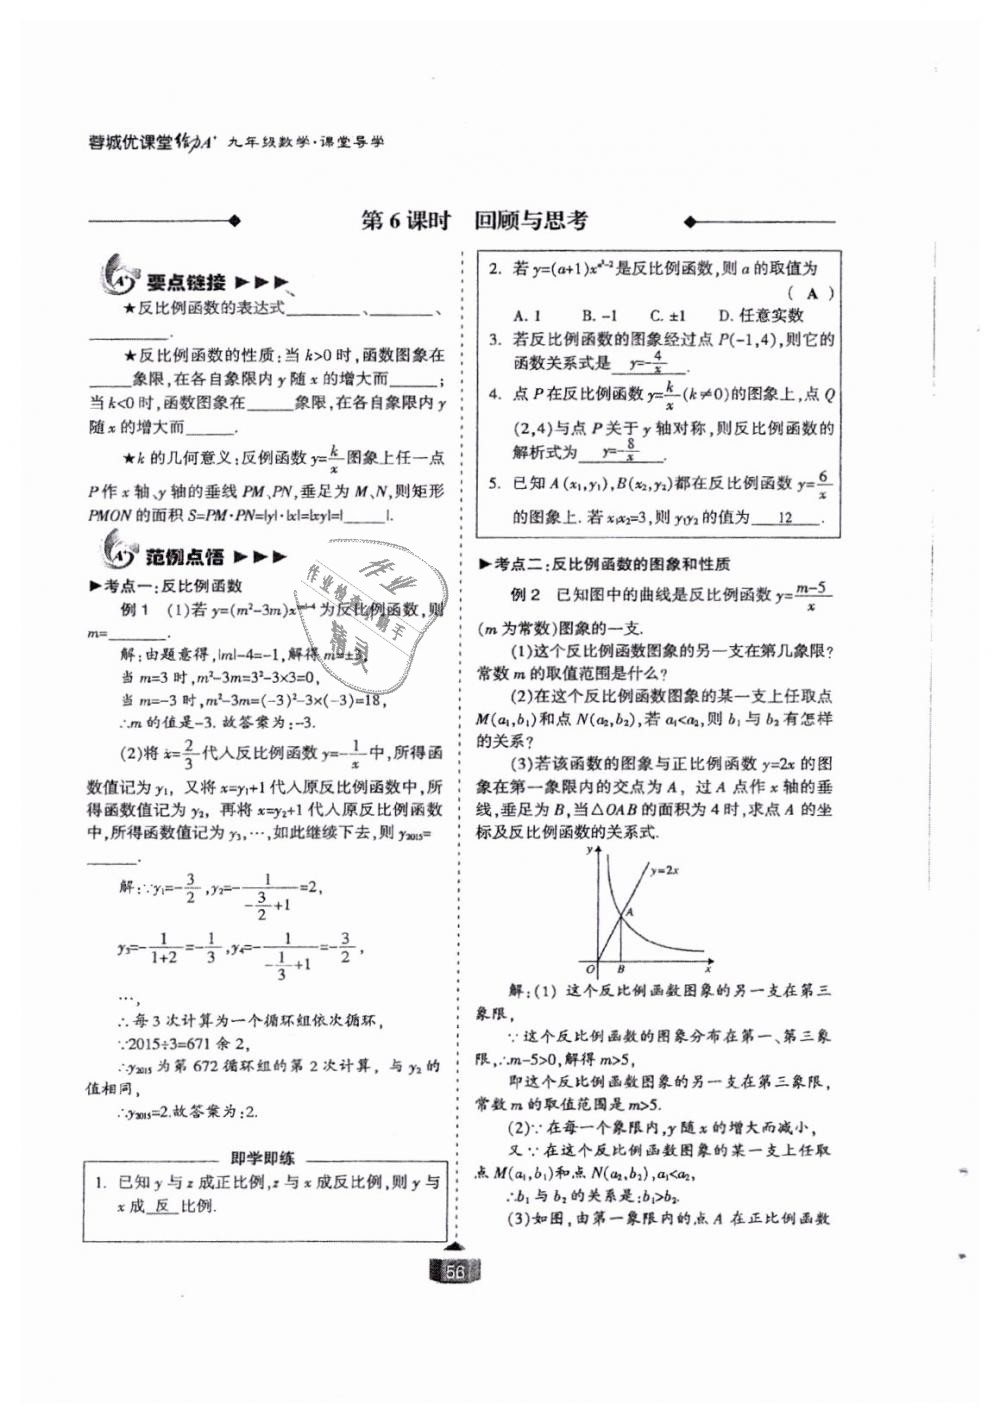 蓉城优课堂给力A⁺ 九年级数学·课堂导学
第6课时 回顾与思考
要点链接 ▶▶▶
★反比例函数的表达式________、________、
________.
★反比例函数的性质:当 k>0 时,函数图象在
_____象限,在各自象限内 y 随 x 的增大而_____;
当 k<0 时,函数图象在_____象限,在各自象限内 y
随 x 的增大而_____.
★k 的几何意义:反例函数 y=k/x 图象上任一点
P 作 x 轴、y 轴的垂线 PM、PN,垂足为 M、N,则矩形
PMON 的面积 S=PM·PN=|y|·|x|=|xy|=|____|.
范例点悟 ▶▶▶
▶考点一:反比例函数
例 1 (1)若 y=(m²-3m)x 为反比例函数,则
m=______.
解:由题意得,|m|-4=-1,解得 m=±3,
当 m=3 时,m²-3m=3²-3×3=0,
当 m=-3 时,m²-3m=(-3)²-3×(-3)=18,
∴m 的值是-3. 故答案为:-3.
(2)将 x=2/3 代人反比例函数 y=-1/x 中,所得函
数值记为 y₁，又将 x=y₁+1 代人原反比例函数中,所
得函数值记为 y₂，再将 x=y₂+1 代人原反比例函数
中,所得函数值记为 y₃,…,如此继续下去,则 y₂₀₁₅=
______.
解:∵y₁=-3/2,y₂=-1/(-3/2+1)=2,
y₃=-1/(1+2)=-1/3,y₄=-1/(-1/3+1)=-3/2,
…,
∴每 3 次计算为一个循环组依次循环,
∵2015÷3=671 余 2,
∴y₂₀₁₅ 为第 672 循环组的第 2 次计算，与 y₂ 的
值相同,
∴y₂₀₁₅=2.故答案为:2.
即学即练
1. 已知 y 与 z 成正比例,z 与 x 成反比例,则 y 与
x 成 反 比例.
2. 若 y=(a+1)x^(a²-2) 是反比例函数,则 a 的取值为
( A )
A. 1 B. -1 C. ±1 D. 任意实数
3. 若反比例函数的图象经过点 P(-1,4),则它的
函数关系式是 y=-4/x .
4. 点 P 在反比例函数 y=k/x (k≠0)的图象上,点 Q
(2,4)与点 P 关于 y 轴对称,则反比例函数的
解析式为 y=-8/x .
5. 已知 A(x₁,y₁),B(x₂,y₂)都在反比例函数 y=6/x
的图象上. 若 x₁x₂=3,则 y₁y₂ 的值为 12 .
▶考点二:反比例函数的图象和性质
例 2 已知图中的曲线是反比例函数 y=(m-5)/x
(m 为常数)图象的一支.
(1)这个反比例函数图象的另一支在第几象限?
常数 m 的取值范围是什么?
(2)在这个反比例函数图象的某一支上任取点
M(a₁,b₁)和点 N(a₂,b₂),若 a₁<a₂,则 b₁ 与 b₂ 有怎样
的关系?
(3)若该函数的图象与正比例函数 y=2x 的图
象在第一象限内的交点为 A，过 A 点作 x 轴的垂
线,垂足为 B,当△OAB 的面积为 4 时,求点 A 的坐
标及反比例函数的关系式.
y
y=2x
A
O B x
解:(1) 这个反比例函数图象的另一支在第三
象限,
∵这个反比例函数的图象分布在第一、第三象
限,∴m-5>0,解得 m>5,
即这个反比例函数图象的另一支在第三象限,
常数 m 的取值范围是 m>5.
(2)∵在每一个象限内,y 随 x 的增大而减小,
又∵在这个反比例函数图象的某一支上任取
点 M(a₁,b₁)和点 N(a₂,b₂),a₁<a₂,
∴b₁ 与 b₂ 的关系是:b₁>b₂.
(3)如图,由第一象限内的点 A 在正比例函数
56
作业
作业检查小助手
精灵